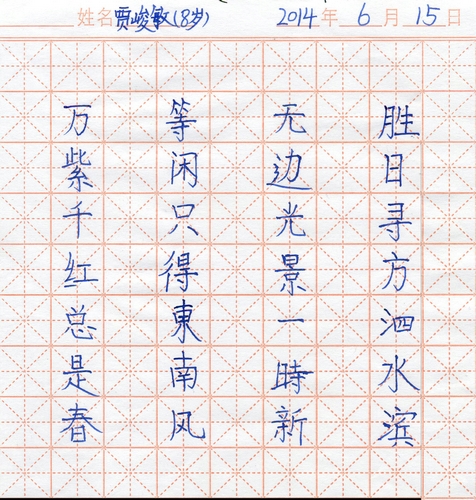 姓名贾峻敏(8岁) 2014年6月15日
胜日寻方泗水滨
无边光景一時新
等闲只得東南风
万紫千红总是春